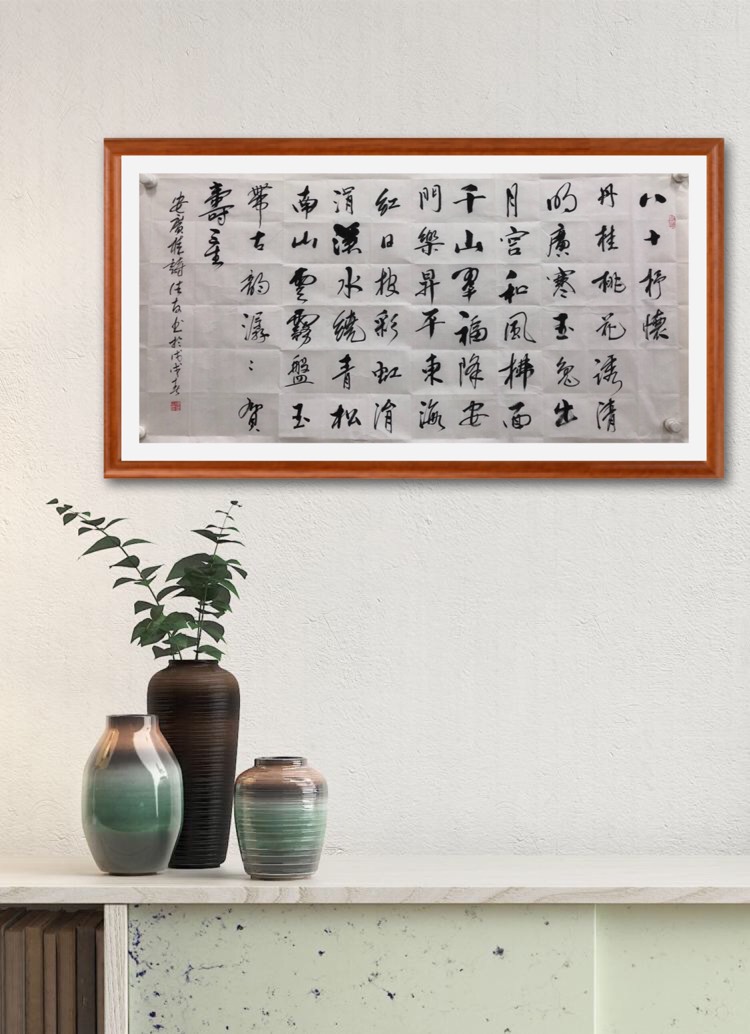 八十抒懷
丹桂桃花誘清
明廣寒玉兔出
月宮和風拂面
千山翠福降安
門樂昇平東海
紅日披彩虹涓
涓漢水繞青松
南山雲霧盤玉
帶古韵潺：賀
壽星
安廣桂詩 書於戊戌春